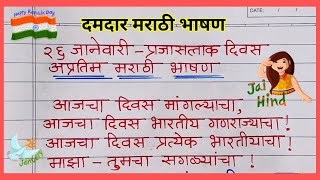 Happy Republic Day
दमदार मराठी भाषण
DATE:
२६ जानेवारी - प्रजासत्ताक दिवस
अप्रतिम मराठी भाषण
Jai Hind
आजचा दिवस मांगल्याचा,
आजचा दिवस भारतीय गणराज्याचा!
आजचा दिवस प्रत्येक भारतीयाचा!
माझा - तुमचा सगळ्यांचा!